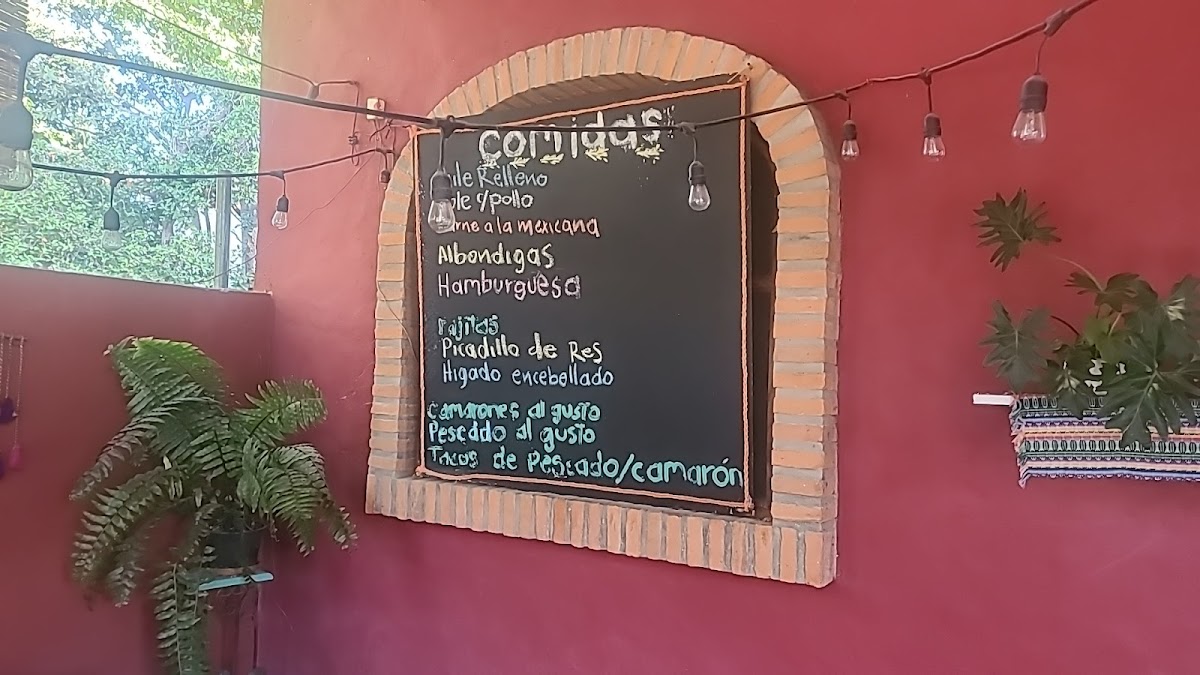 comidas
Chile Relleno
Mole c/pollo
Carne a la mexicana
Albondigas
Hamburguesa
Fajitas
Picadillo de Res
Higado encebollado
Camarones al gusto
Pescado al gusto
Tacos de Pescado/camarón